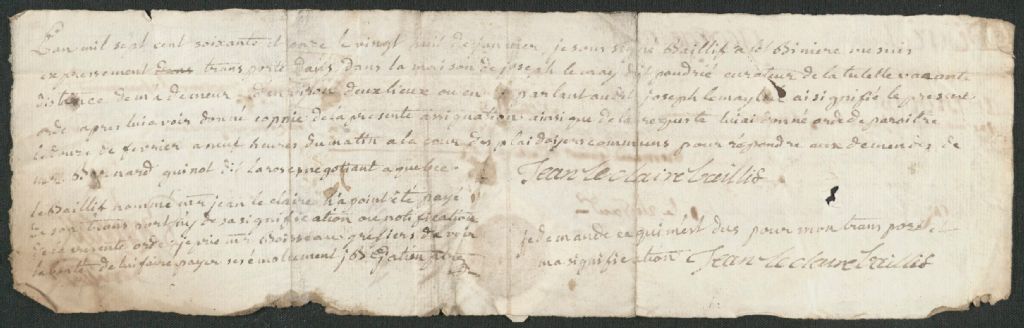 L'an mil sept cent soixante et onze le vingt huit de janvier, je sous signé Baillif a st Biniere me suis
expressement trans porté dans la maison de joseph le may dit poudrié curateur de la tutelle vacante
distence de ma demeur denviron deux lieux ou en parlant audit joseph le may lui ai signifié le present
orde apres lui avoir donné coppie de la presente assignation ainsi que de la requeste lui ai donné orde de paroitre
le douze de fevrier a neuf heures du matin a la cour des plaidoyers communs pour répondre aux demendes de
mr Bernard quinot dit larose negotiant a quebec
Jean Leclaire baillif
le Baillif nommé mr jean le claire n'a point été payé
de son trans port ny de sa signification ou notification
de la presente orde je prie mr Boisseau grefiers d'avoir
la bonté de lui faire payer ses émoluments
je demande ce qui m'est dus pour mon trans port et
ma signification Jean Leclaire baillif